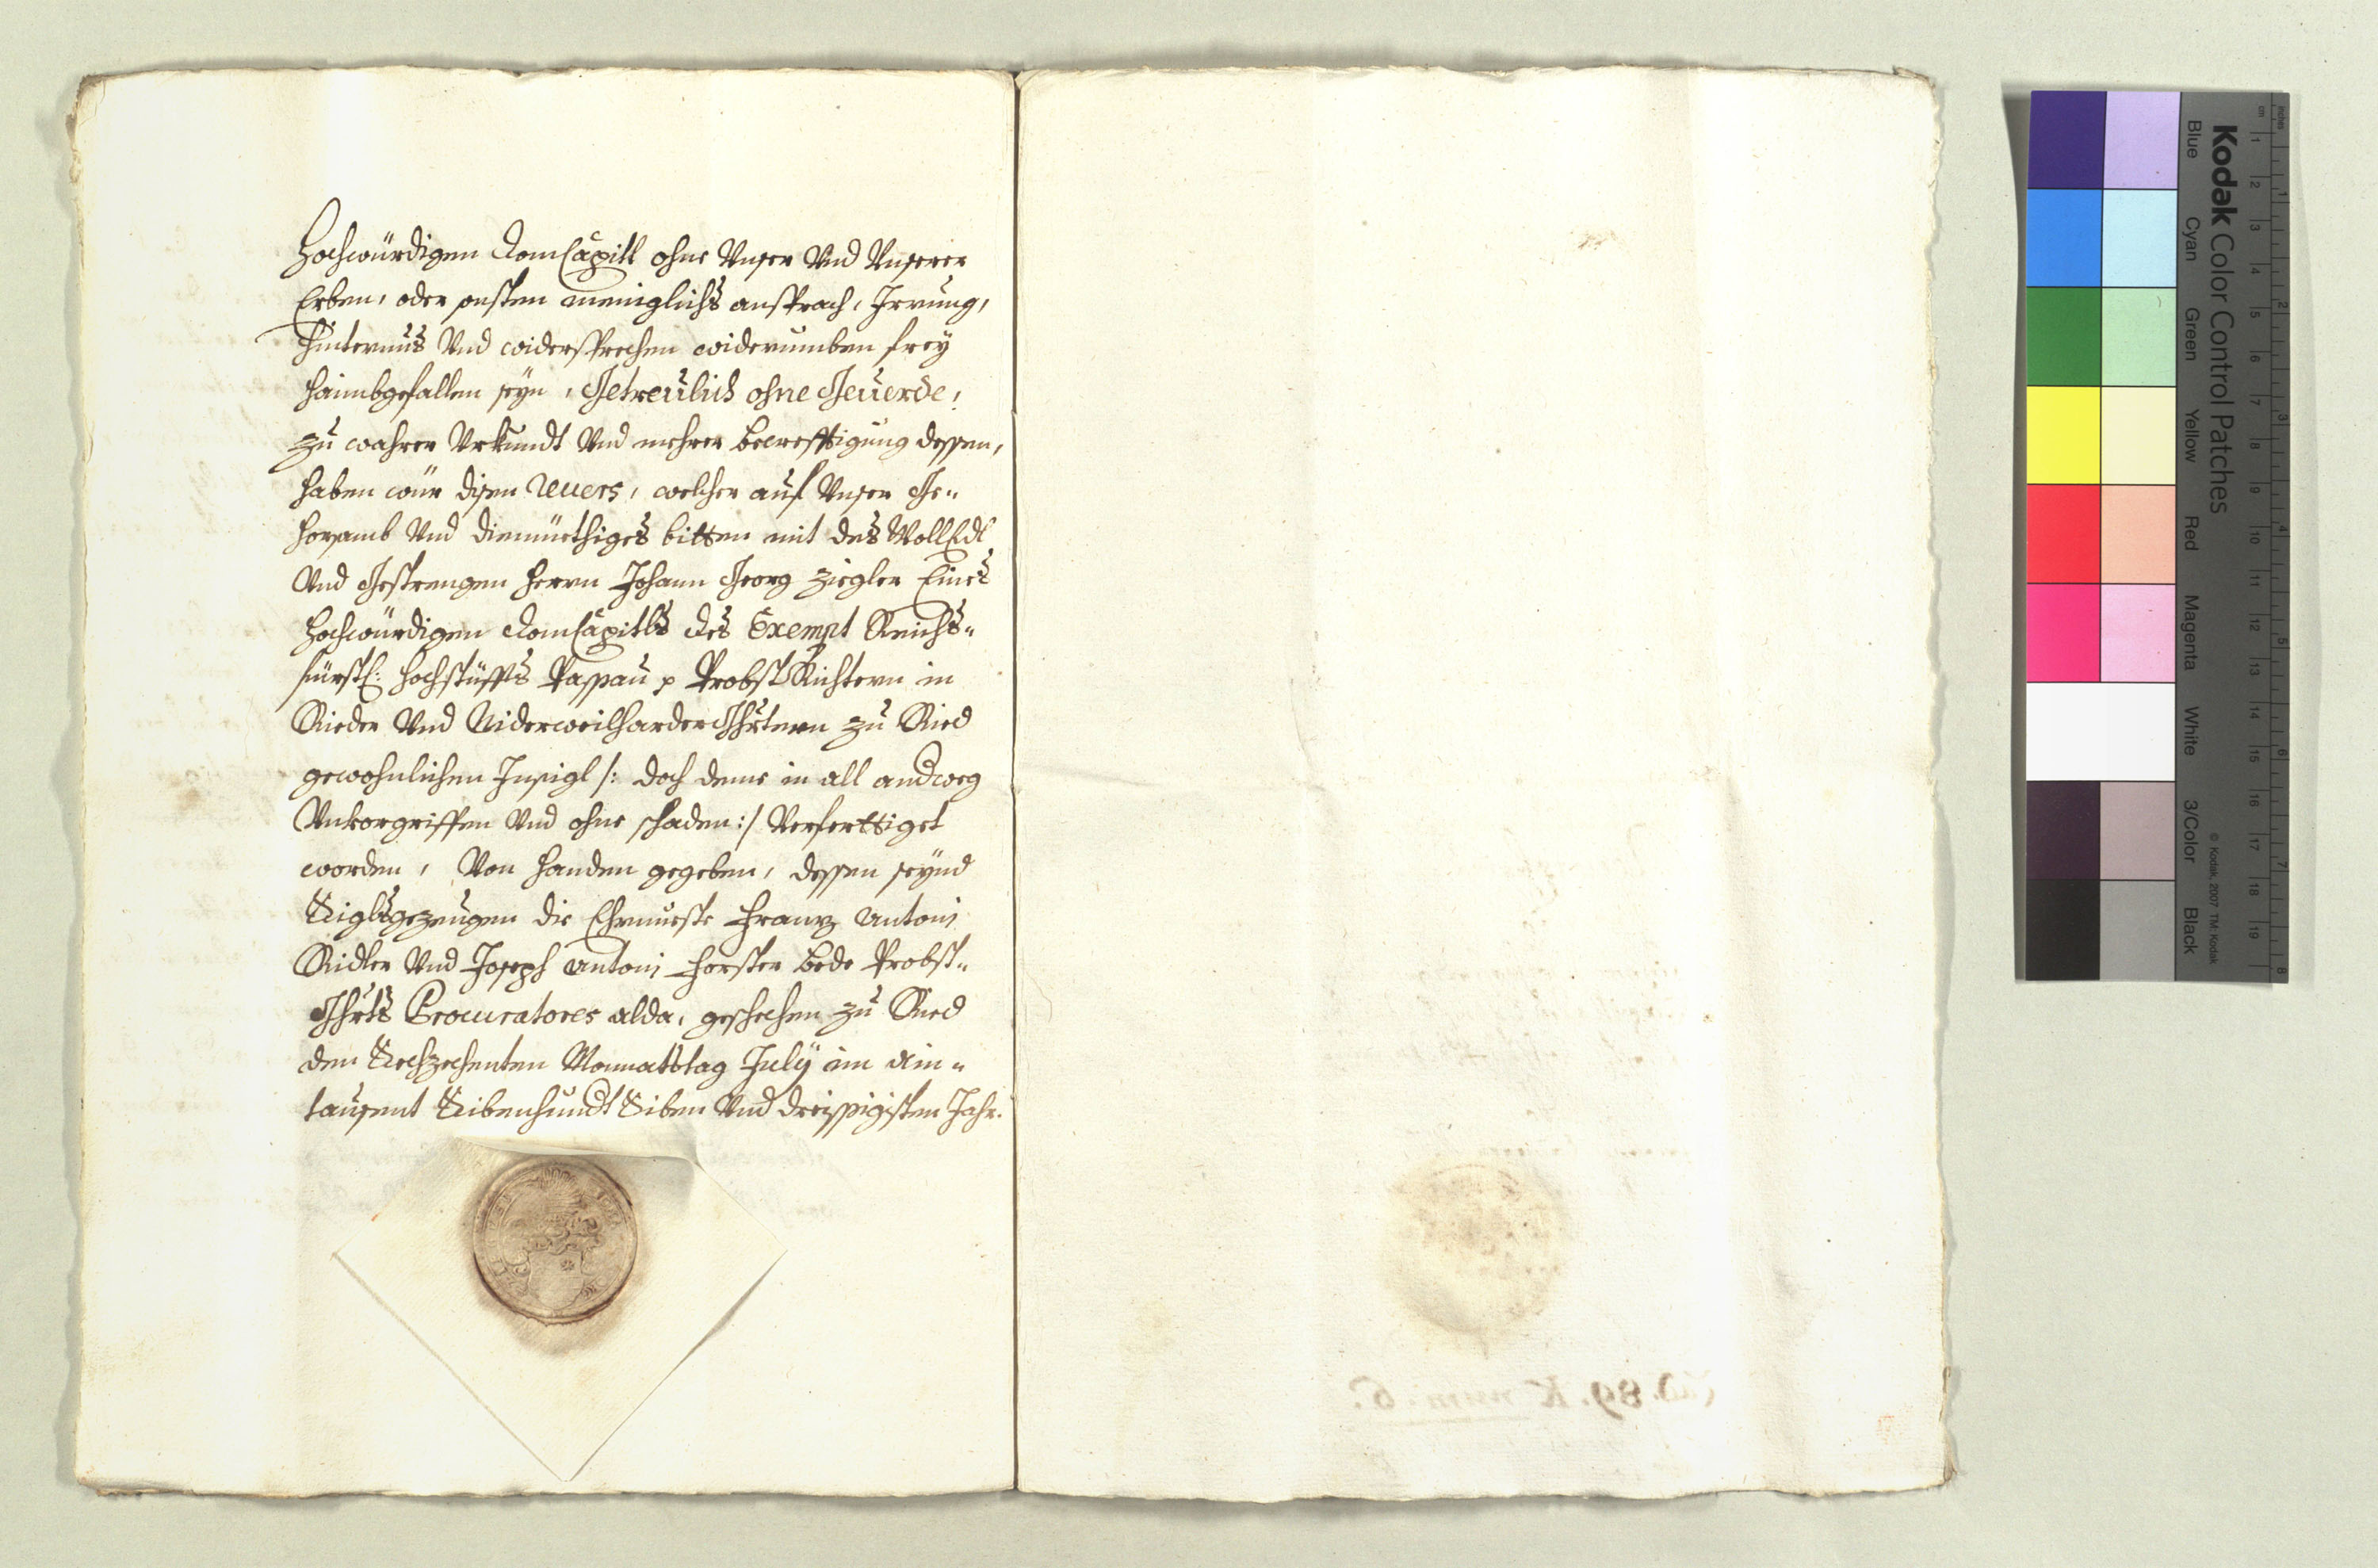 Hochwürdigen DomCapitl ohne Unser Und Unserer
Erben, oder onsten meniglichs ansprach, Irrung,
hinternus Und widersprechen widerumben frey
haimbgefallen seyn, Getreulich ohne Geuerde,
zu wahrer Urkundt Und mehrer becrefftigung dessen,
haben wür disen Reuers, welcher auf Unser Ge-
horsamb Und diemüethiges bitten mit des WollEdl
Und Gestrengen Herrn Johann Georg Ziegler Eines
Hochwürdigen DomCapitls des Exempt Reichs-
fürstl: Hochstüffts Passau p Probst Richtern in
Rieder Und Niderweilharder Ghrtern zu Ried
gewohnlichen Insigl /: doch deme in all andweg
Unuorgriffen Und ohne schaden :/ Verferttiget
worden, Von handen gegeben, dessen seynd
Siglsgezeugen die Ehrnueste Franz Antoni
Ridler Und Joseph Antoni Forster bede Probst-
Ghrts Procuratores alda, geschechen zu Ried
den Sechzechenten Monnattstag July im Ain-
tausent Sibenhundt Siben Und dreissigisten Jahr.
89. K num. 6.
Kodak Color Control Patches
Blue Cyan Green Yellow Red Magenta White 3/Color Black
© Kodak, 2007 TM: Kodak
cm 1 2 3 4 5 6 7 8 9 10 11 12 13 14 15 16 17 18 19
inches 1 2 3 4 5 6 7 8